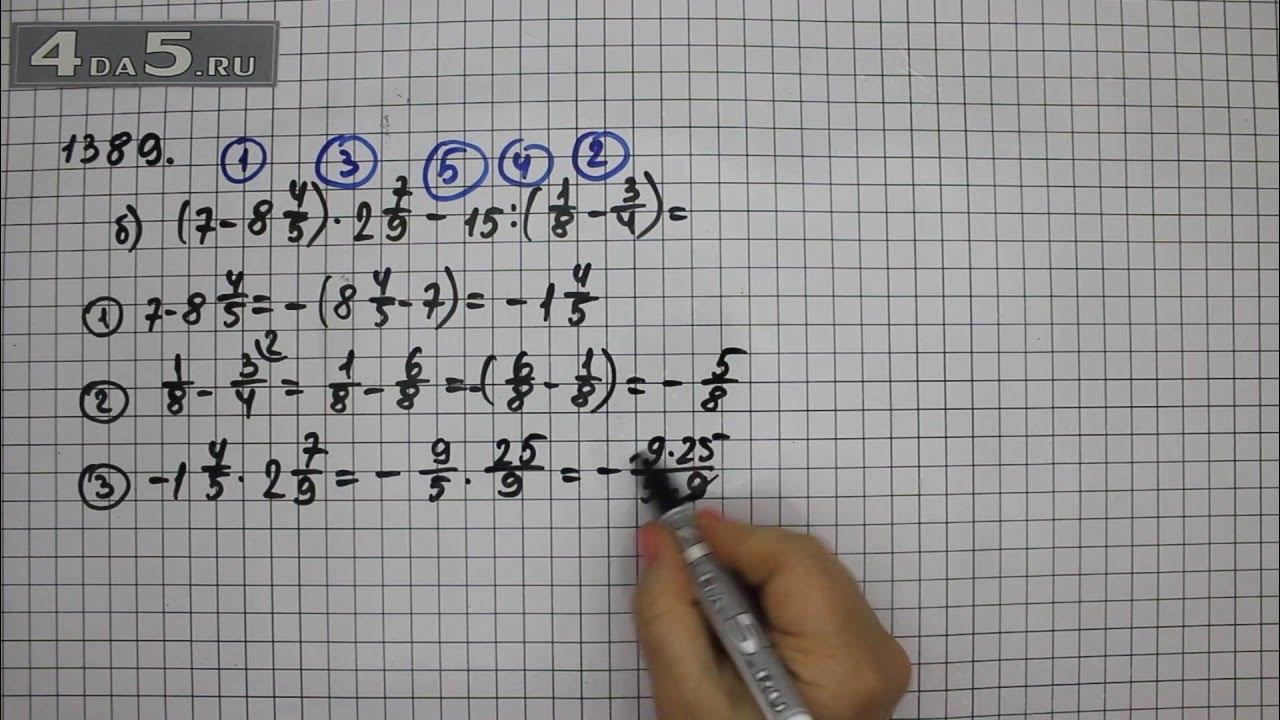 4DA5.RU
1389. ① ③ ⑤ ④ ②
б) (7 - 8 4/5) · 2 7/9 - 15 : (1/8 - 3/4) =
① 7 - 8 4/5 = -(8 4/5 - 7) = -1 4/5
② 1/8 - 3/4 (2 = 1/8 - 6/8 = -(6/8 - 1/8) = - 5/8
③ -1 4/5 · 2 7/9 = - 9/5 · 25/9 = - 9·25/5·9